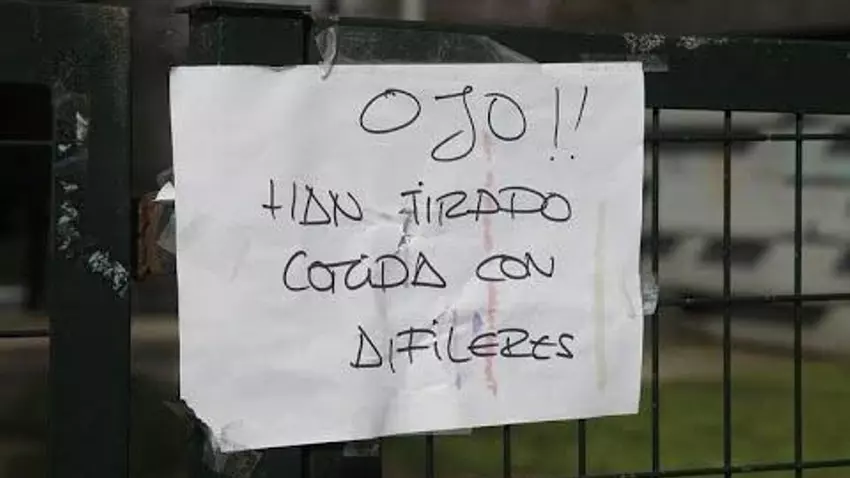 OJO!!
HAN TIRADO
COMIDA CON
DIFILERES